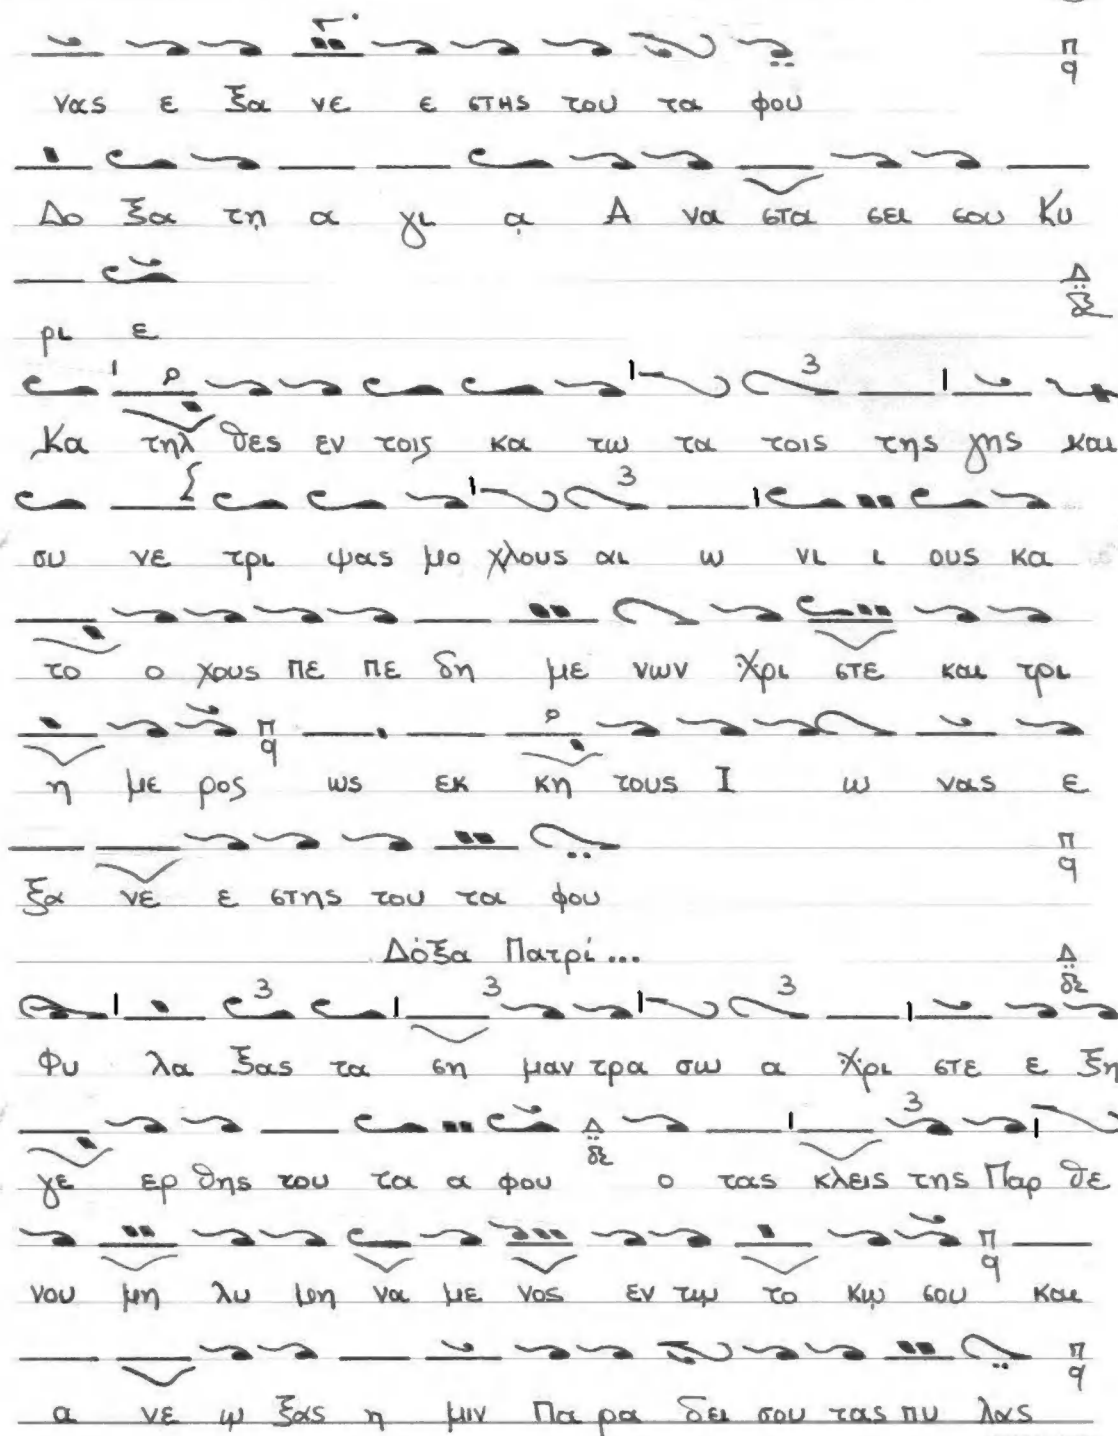 νας ε ξα νε ε στης του τα φου
Δο ξα τῃ α γι ᾳ Α να στα σει σου Κυ
ρι ε
Κα τηλ θες εν τοις κα τω τα τοις της γης και
συ νε τρι ψας μο χλους αι ω νι ι ους κα
το ο χους πε πε δη με νων Χρι στε και τρι
η με ρος ως εκ κη τους Ι ω νας ε
ξα νε ε στης του τα φου
Δόξα Πατρί...
Φυ λα ξας τα ση μαν τρα σω α Χρι στε ε ξη
γε ερ θης του τα α φου ο τας κλεις της Παρ θε
νου μη λυ μη να με νος εν τῳ το κῳ σου και
α νε ῳ ξας η μιν Πα ρα δει σου τας πυ λας